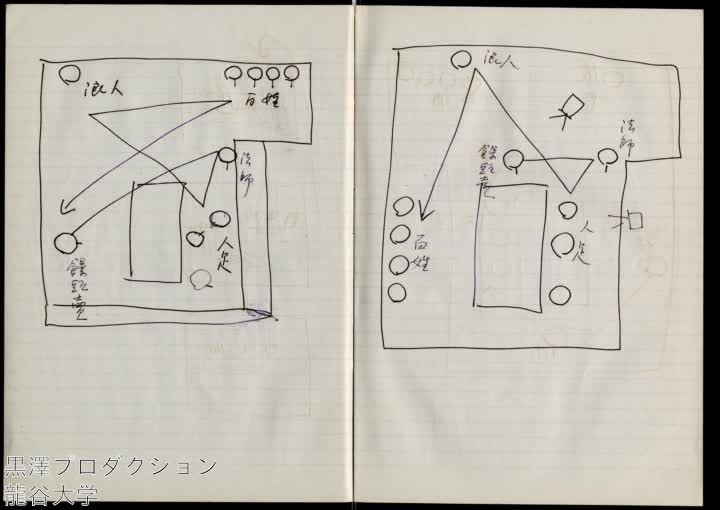 浪人
百姓
法師
人足
饅頭売
浪人
法師
饅頭売
人足
百姓
黒澤プロダクション
龍谷大学